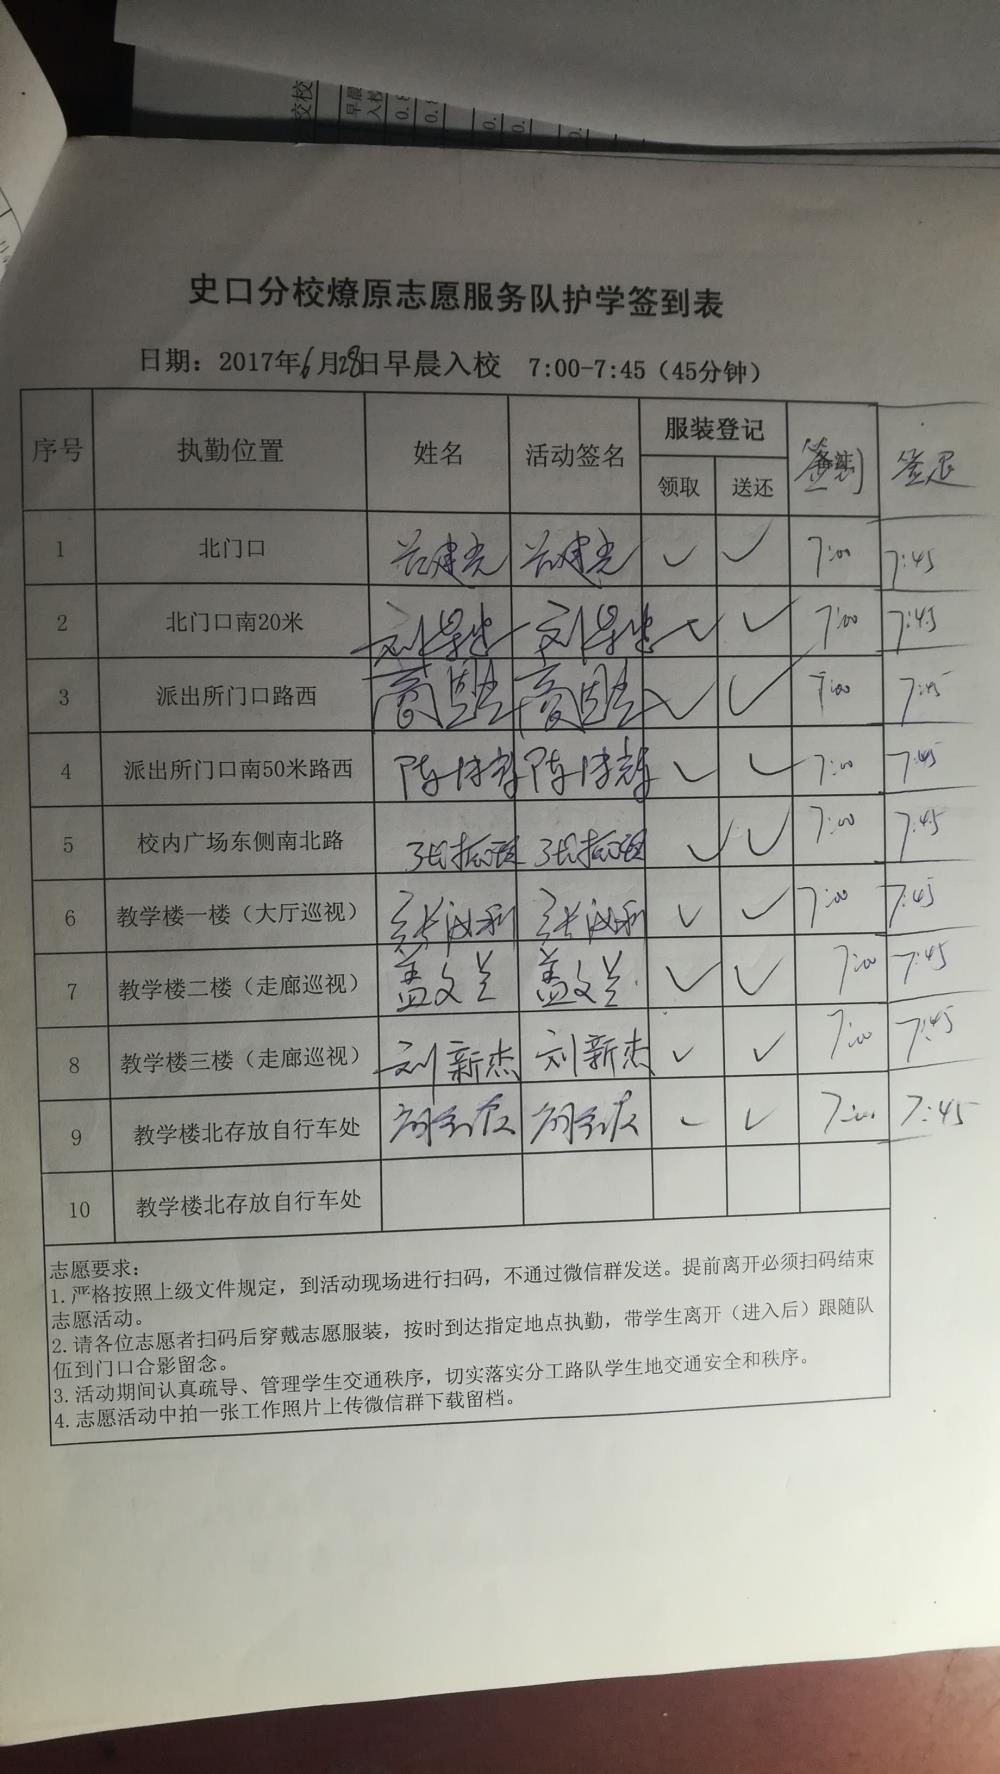 史口分校燎原志愿服务队护学签到表
日期：2017年6月28日早晨入校 7:00-7:45（45分钟）
序号 执勤位置 姓名 活动签名 服装登记 签到 签退
领取 送还
1 北门口 建光 建光 ✓ ✓ 7:00 7:45
2 北门口南20米 刘 刘 ✓ ✓ 7:00 7:45
3 派出所门口路西 高 高 ✓ ✓ 7:00 7:45
4 派出所门口南50米路西 陈 陈 ✓ ✓ 7:00 7:45
5 校内广场东侧南北路 张 张 ✓ ✓ 7:00 7:45
6 教学楼一楼（大厅巡视） 利 利 ✓ ✓ 7:00 7:45
7 教学楼二楼（走廊巡视） 盖文兰 盖文兰 ✓ ✓ 7:00 7:45
8 教学楼三楼（走廊巡视） 刘新杰 刘新杰 ✓ ✓ 7:00 7:45
9 教学楼北存放自行车处 ✓ ✓ 7:00 7:45
10 教学楼北存放自行车处
志愿要求：
1.严格按照上级文件规定，到活动现场进行扫码，不通过微信群发送。提前离开必须扫码结束
志愿活动。
2.请各位志愿者扫码后穿戴志愿服装，按时到达指定地点执勤，带学生离开（进入后）跟随队
伍到门口合影留念。
3.活动期间认真疏导、管理学生交通秩序，切实落实分工路队学生地交通安全和秩序。
4.志愿活动中拍一张工作照片上传微信群下载留档。